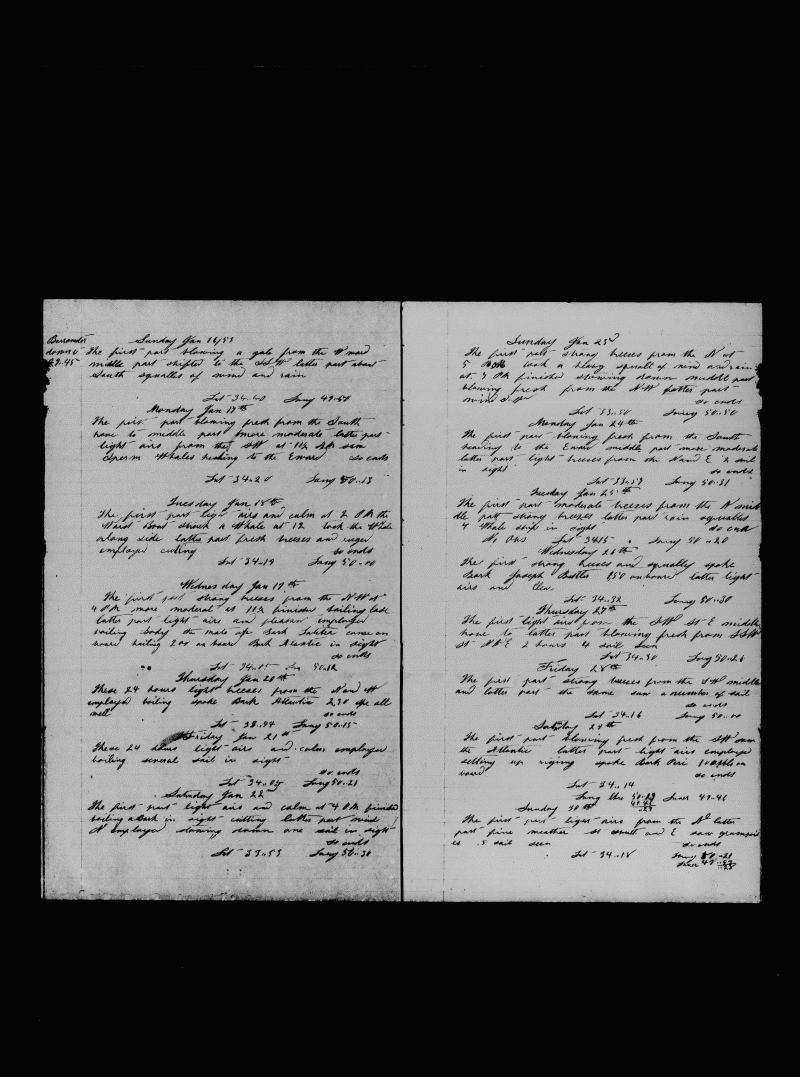 Sunday Jan 16/53
Barometer
down to
29.45
The first part blowing a gale from the W ward
middle part shifted to the latter part about
South squalles of wind and rain
Lat 34.40 Long 49.51
Monday Jan 17th
The first part blowing fresh from the South
hove to middle part more moderate latter part
light airs from the SW at 11h AM saw
Sperm Whales heading to the Eward so ends
Lat 34.20 Long 50.13
Tuesday Jan 18th
The first part light airs and calm at 2 PM the
Waist Boat struck a Whale at 12 took the Whale
along side latter part fresh breeses and ruged
employed cutting so ends
Lat 34.19 Long 50.00
Wednesday Jan 19th
The first part strong breeses from the NW at
4 PM more moderat at finished bailing
latter part light airs and pleasent employed
boiling body the mate of Bark came on
board boiling 200 on board Bark Atlantic in sight
so ends
Lat 34.05 Lon 50.12
Thursday Jan 20th
These 24 hours light breeses from the N and W
employed boiling spoke Bark Atlantic 230 spe all
well so ends
Lat 33.54 Long 50.15
Friday Jan 21st
These 24 hours light airs and calm employed
boiling several sail in sight
so ends
Lat 34.05 Long 50.21
Saturday Jan 22nd
The first part light airs and calm at 4 PM finished
boiling a Bark in sight cutting latter part wind
N employed stowing down one sail in sight
so ends
Lat 33.53 Long 50.30
Sunday Jan 23d
The first part strong breeses from the N at
5 took a heavy squall of wind and rain
at 9 PM finished stowing down middle part
blowing fresh from the NW latter part
wind so ends
Lat 33.50 Long 50.50
Monday Jan 24th
The first part blowing fresh from the South
heading to the Eward middle part more moderate
latter part light breeses from the N and E 2 sail
in sight so ends
Lat 33.59 Long 50.31
Tuesday Jan 25th
The first part moderate breeses from the N mid
dle part strong breezes latter part rain squalles
4 Whale ship in sight so ends
No Obs Lat 34.15 Long 50.20
Wednesday 26th
The first strong breeses and squally spoke
Bark Joseph Butler 250 on board latter light
airs and
Lat 34.32 Long 50.30
Thursday 27th
The first light airs from the SW St E middle
hove to latter part blowing fresh from SSW
St NNE 2 hours 4 sail seen
Lat 34.30 Long 50.26
Friday 28th
The first part strong breeses from the SW middle
and latter part the same saw a number of sail
so ends
Lat 34.16 Long 50.00
Saturday 29th
The first part blowing fresh from the SW saw
the Atlantic latter part light airs employed
setting up riging spoke Bark Peri 100 bbls on
board so ends
Lat 34.14
Long Obs 50.23 Lunar 49.46
Sunday 30th
The first part light airs from the N latter
part fine weather St South and E saw grampus
es 5 sail seen so ends
Lat 34.18 Long 50.21